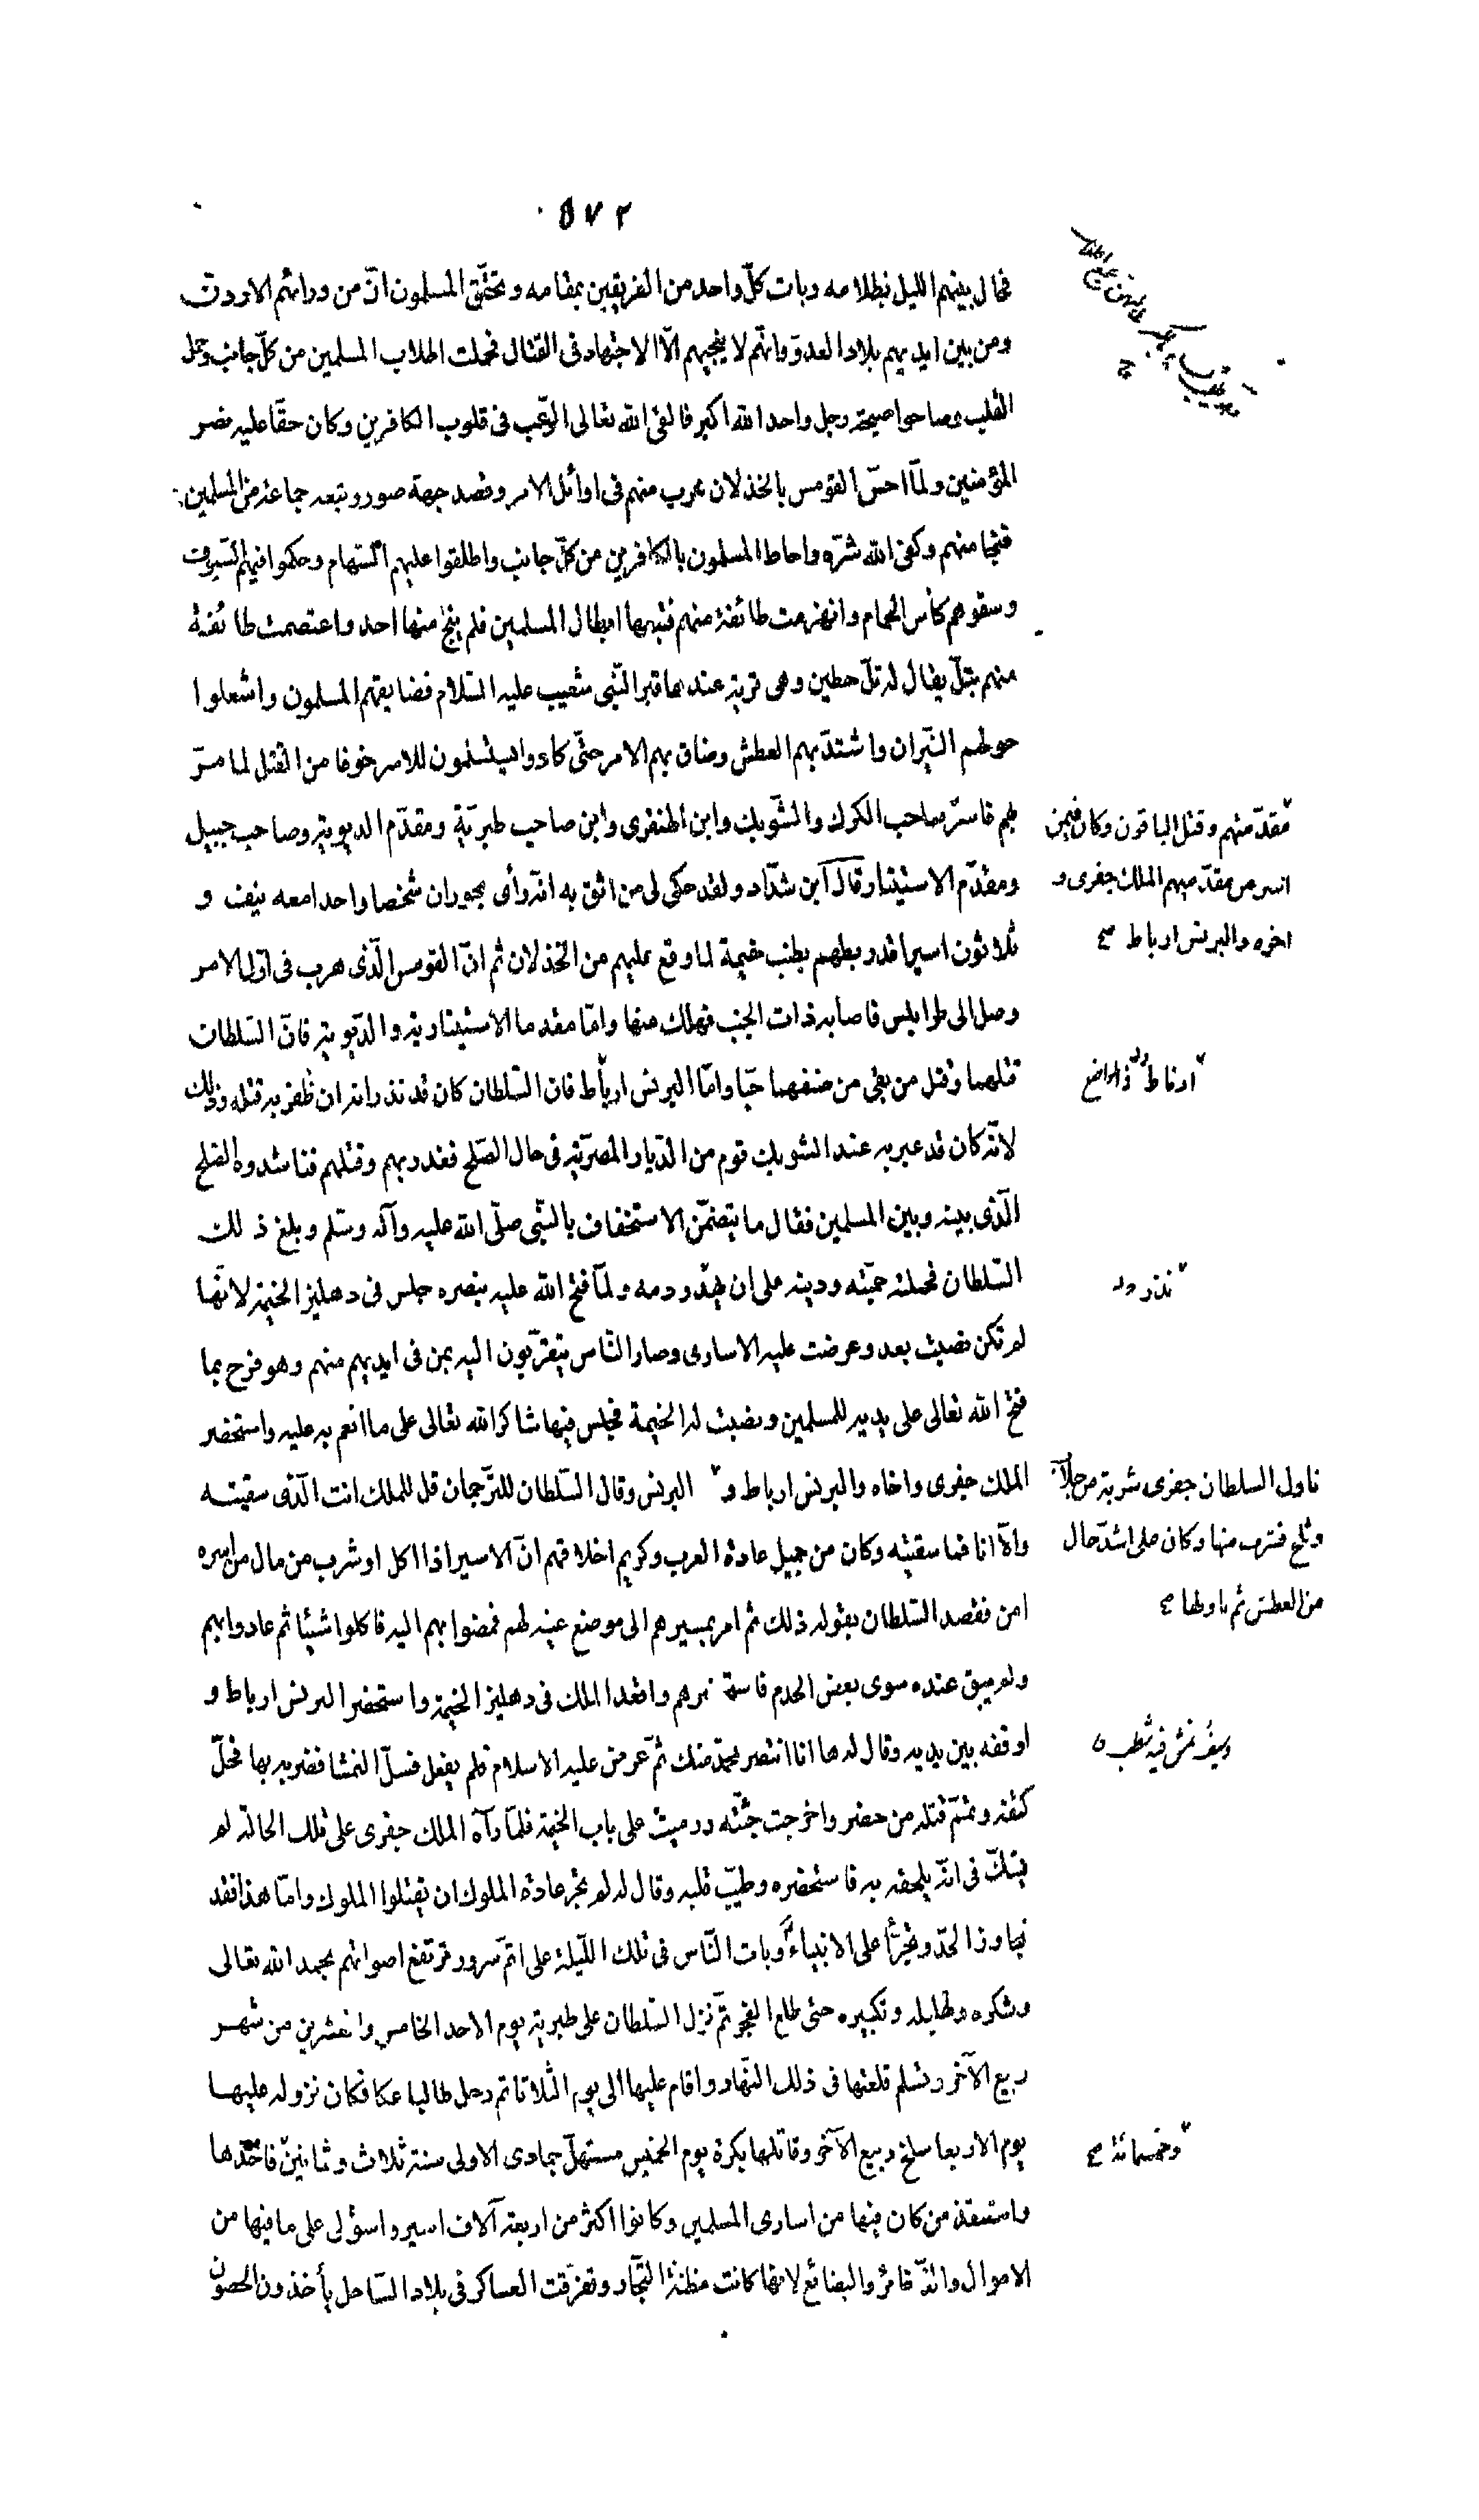 ٥٧٢
فحال بينهم الليل بظلامه وبات كلّ واحد من الفريقين بمقامه وتحقّق المسلمون انّ من ورائهم الاردن
ومن بين ايديهم بلاد العدوّ وانّهم لا ينجيهم الّا الاجتهاد فى القتال فحملت اطلاب المسلمين من كلّ جانب وحمل
القلب وصاحوا صيحة رجل واحد الله اكبر فالقى الله تعالى الرّعب فى قلوب الكافرين وكان حقّا عليه نصر
المؤمنين ولمّا احسّ القومس بالخذلان هرب منهم فى اوائل الامر وقصد جهة صور وتبعه جماعة من المسلمين
فنجا منهم وكفى الله شرّه واحاط المسلمون بالكافرين من كلّ جانب واطلقوا عليهم السّهام وحكموا فيهم السّيوف
وسقوهم كأس الحمام وانهزمت طائفة منهم فتبعها ابطال المسلمين فلم ينج منها احد واعتصمت طائفة
منهم بتلّ يقال له تلّ حطين وهى قرية عندها قبر النّبى شعيب عليه السّلام فضايقهم المسلمون واشعلوا
حولهم النّيران واشتدّ بهم العطش وضاق بهم الامر حتّى كادوا يستسلمون للامر خوفا من القتل لما مرّ
بهم فاسر صاحب الكرك والشّوبك وابن الهنفرى وابن صاحب طبريّة ومقدّم الديوية وصاحب جبيل
ومقدّم الاستبار وقال ابن شدّاد ولقد حكى لى من اثق به انّه رأى بحوران شخصا واحدا معه نيف و
ثلاثون اسيرا قد ربطهم بطنب خيمة لما وقع عليهم من الخذلان ثم انّ القومس الّذى هرب فى اوّل الامر
وصل الى طرابلس فاصابه ذات الجنب فهلك منها وامّا مقدما الاستبنارية والدّيوية فانّ السّلطان
قتلهما وقتل من بقى من صنفهما حيّا وامّا البرنس ارباط فان السّلطان كان قد نذر انه ان ظفر به قتله وذلك
لانّه كان قد عبر به عند الشوبك قوم من الدّيار المصريّة فى حال الصّلح فغدر بهم وقتلهم فناشدوه الصّلح
الّذى بينه وبين المسلمين فقال ما يتضمّن الاستخفاف بالنّبى صلّى الله عليه وآله وسلّم وبلغ ذلك
السّلطان فحملته حميّته ودينه على ان يهدر دمه ولمّا فتح الله عليه بنصره جلس فى دهليز الخيمة لانّها
لم تكن نصبت بعد وعرضت عليه الاسارى وصار النّاس يتقرّبون اليه بمن فى ايديهم منهم وهو فرح بما
فتح الله تعالى على يديه للمسلمين ونصبت له الخيمة فجلس فيها شاكرا لله تعالى على ما انعم به عليه واستحضر
الملك جفرى واخاه والبرنس ارباط و البرنس وقال السّلطان للتّرجمان قل للملك انت الّذى سقيته
والّا انا فما سقيته وكان من جميل عادة العرب وكريم اخلاقهم انّ الاسير اذا اكل او شرب من مال من اسره
امن فقصد السّلطان بقوله ذلك ثم امر بمسيرهم الى موضع عينه لهم فمضوا بهم اليه فاكلوا شيئا ثم عادوا بهم
ولم يبق عنده سوى بعض الخدم فاستحضرهم واقعد الملك فى دهليز الخيمة واستحضر البرنس ارباط و
اوقفه بين يديه وقال له ها انا انتصر لمحمّد منك ثمّ عرض عليه الاسلام فلم يفعل فسلّ النمشا فضربه بها فحلّ
كتفه وتمّم قتله من حضر واخرجت جثّته ورميت على باب الخيمة فلمّا رآه الملك جفرى على تلك الحالة لم
يشكّ فى انّه يلحقه به فاستحضره وطيّب قلبه وقال له لم تجر عادة الملوك ان يقتلوا الملوك وامّا هذا فقد
تجاوز الحدّ وتجرّأ على الانبياء وبات النّاس فى تلك اللّيلة على اتمّ سرور ترتفع اصواتهم بحمد الله تعالى
وشكره وتهليله وتكبيره حتى طلع الفجر ثمّ نزل السّلطان على طبرية يوم الاحد الخامس والعشرين من شهر
ربيع الآخر وتسلم قلعتها فى ذلك النّهار واقام عليها الى يوم الثّلاثا ثم رحل طالبا عكا فكان نزوله عليها
يوم الاربعا سلخ ربيع الآخر وقاتلها بكرة يوم الخميس مستهلّ جمادى الاولى سنة ثلاث وثمانين فاخذها
واستنقذ من كان فيها من اسارى المسلمين وكانوا اكثر من اربعة آلاف اسير واستولى على ما فيها من
الاموال والذّخائر والبضائع لانها كانت مظنة التجّار وتفرّقت العساكر فى بلاد السّاحل يأخذون الحصون
مقدّ منهم وقتل الباقون وكان فيمن
اسر من مقدّميهم الملك جفرى و
اخوه والبرنس ارباط صح
ارناط
نذر
ناول السلطان جفرى شربة من جلاب
وثلج فشرب منها وكان على اشدّ حال
من العطش ثم ناولها صح
وخمسمائة صح